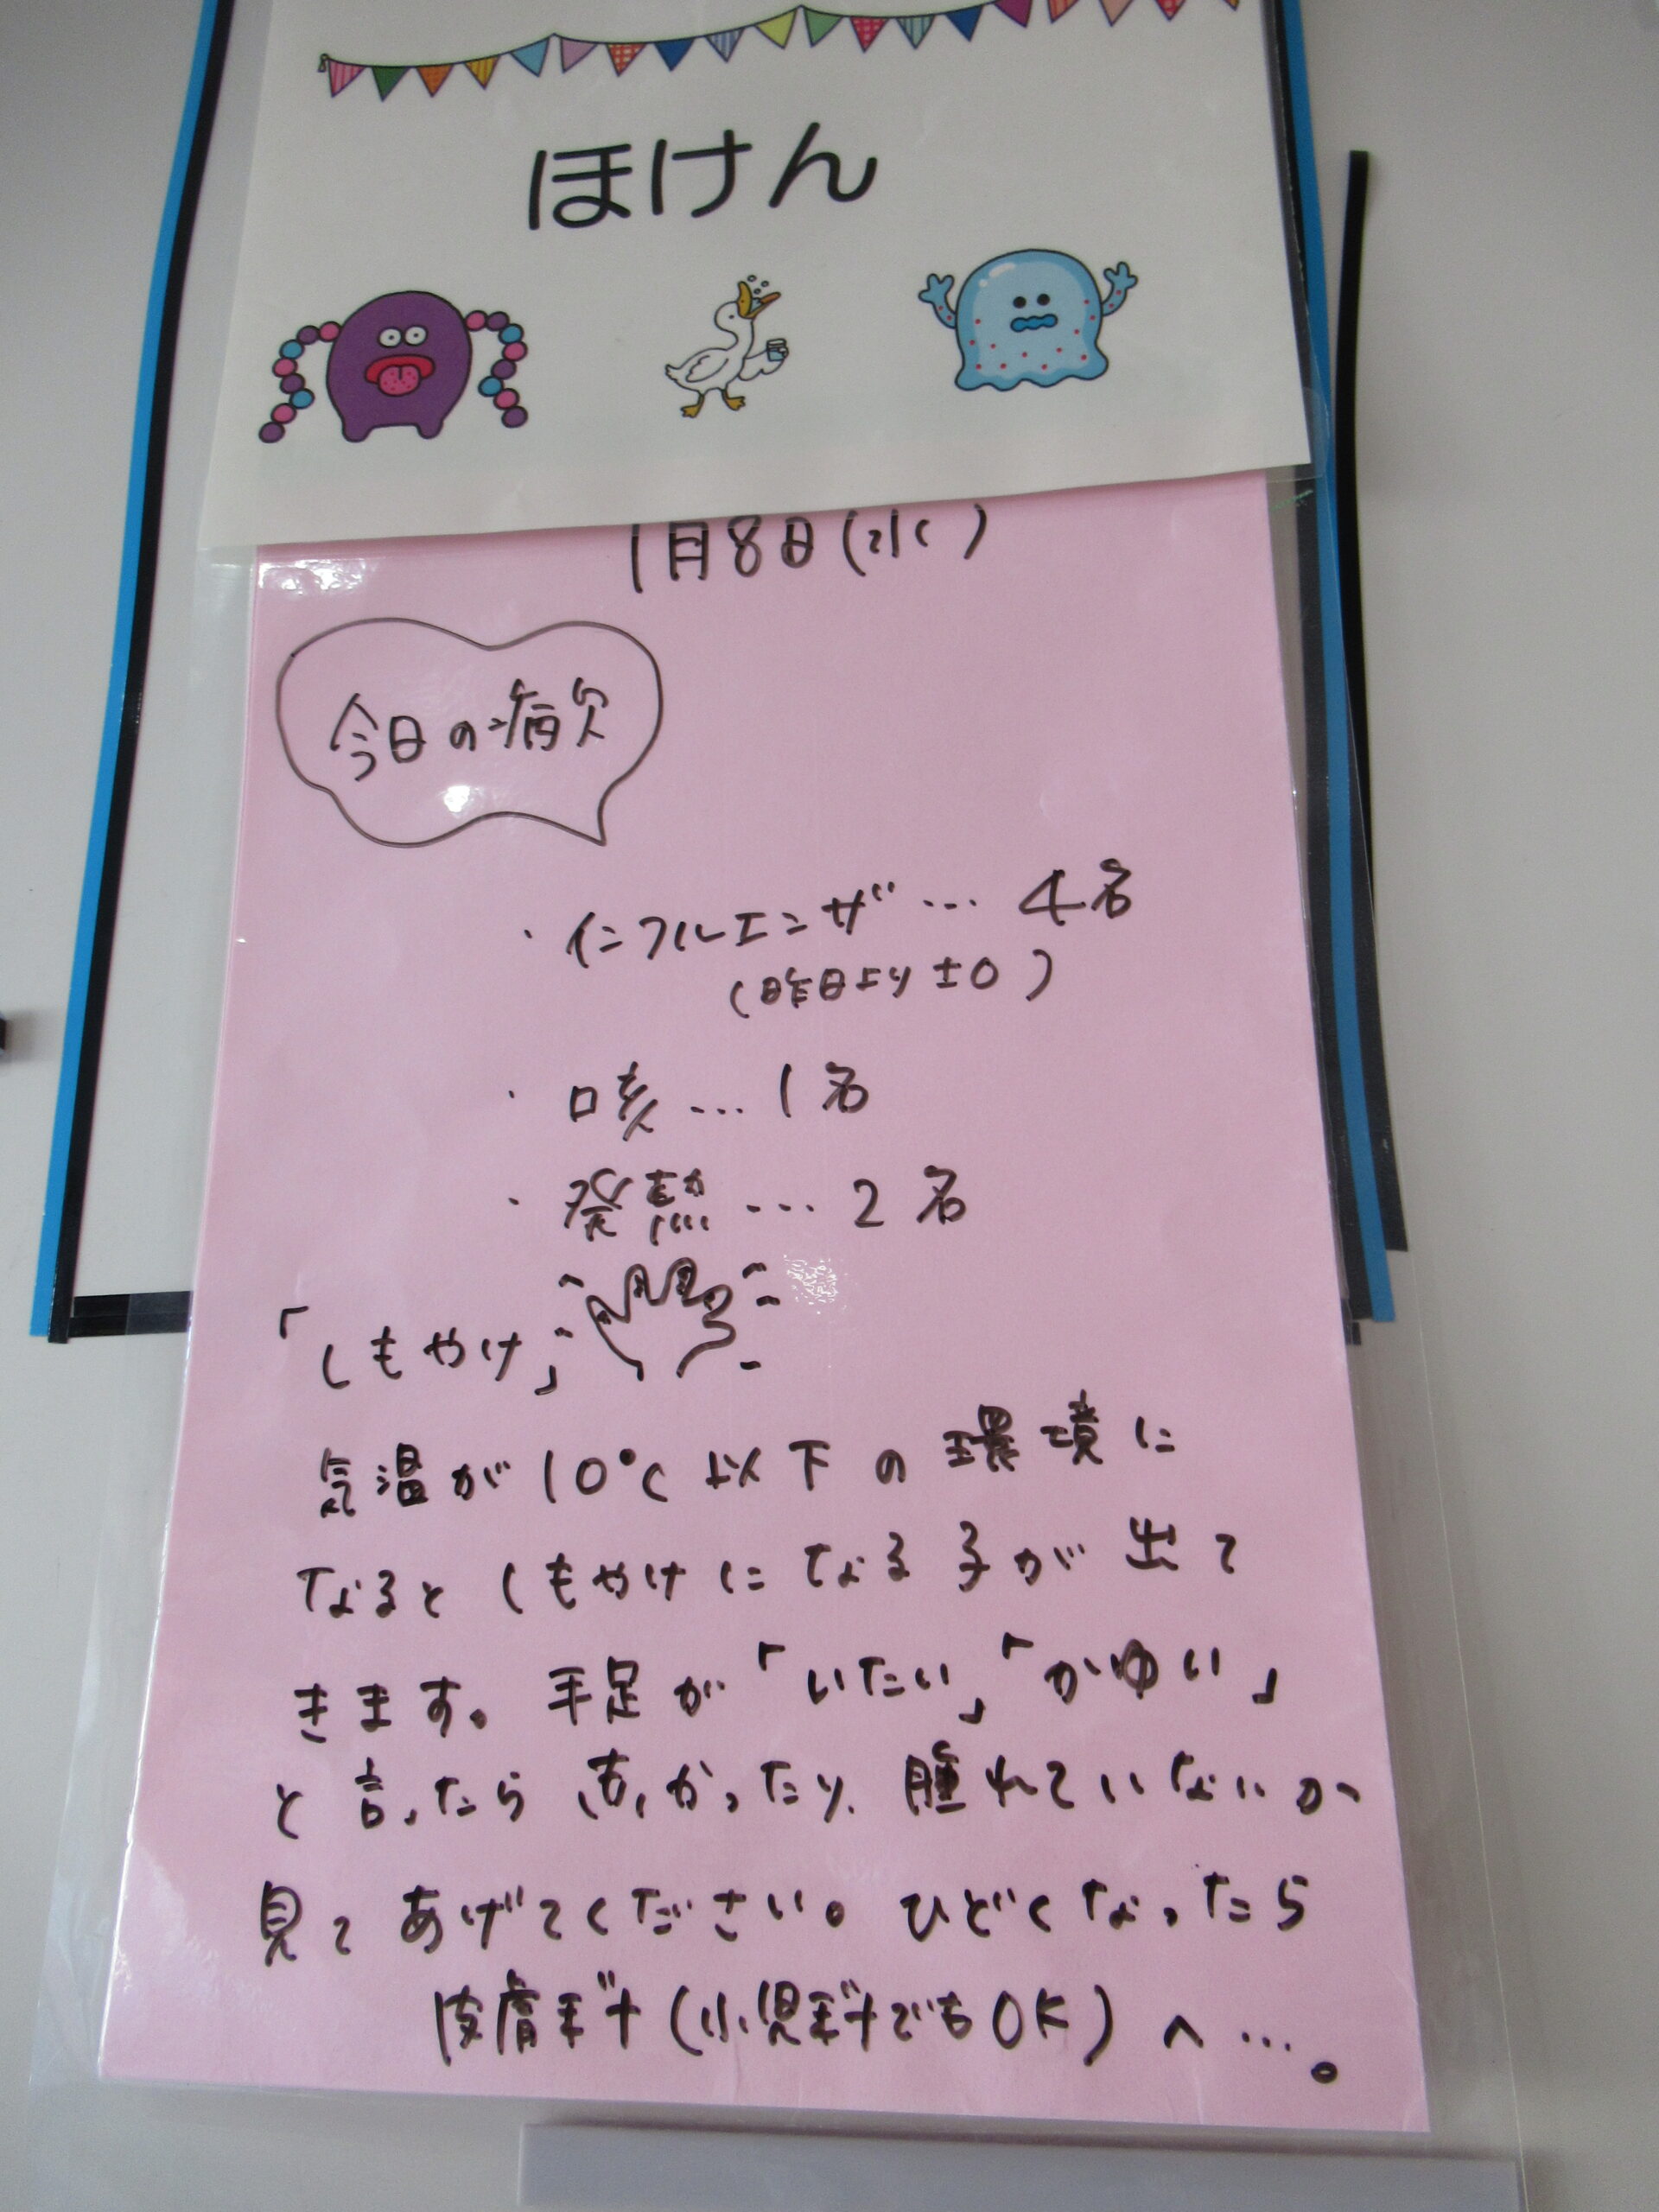 ほけん
1月8日(水)
今日の病欠
・インフルエンザ…4名
(昨日より±0)
・咳…1名
・発熱…2名
「しもやけ」
気温が10℃以下の環境に
なるとしもやけになる子が出て
きます。手足が「いたい」「かゆい」
と言ったら赤かったり、腫れていないか
見てあげてください。ひどくなったら
皮膚科(小児科でもOK)へ…。